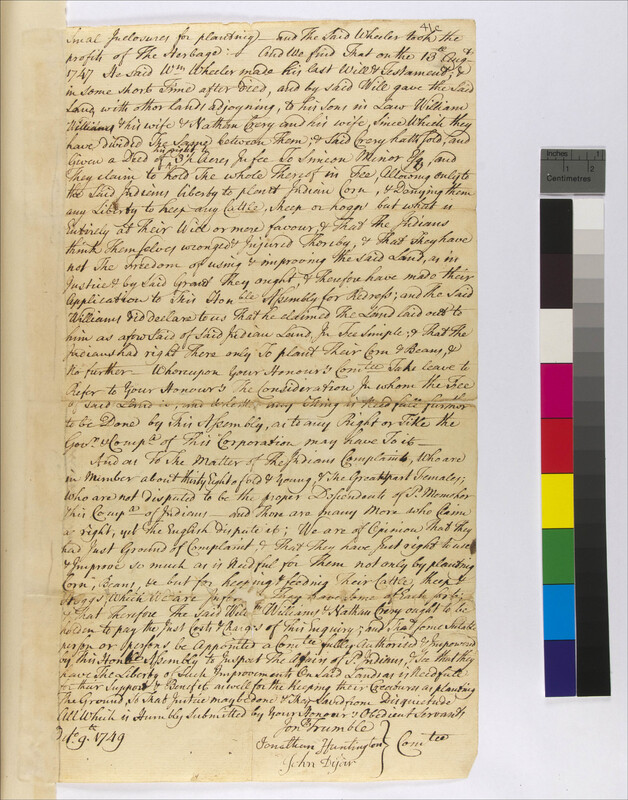 41c
Smal Inclosures for planting) and The Said Wheeler took the
profits of The Herbage: And We find That on the 13th Augt
1747 He Said Wm Wheeler made his last Will & Testament, &
in Some Short Time after Died, and by Said Will gave the Said
Land, with other lands adjoyning, to his Sons in Law William
Williams & his wife & Nathan Crery and his wife, Since Which they
have divided The Same between Them, & Said Crery hath Sold, and
Given a Deed of his right in Acres, In fee To Simeon Minor and
They claim to hold The whole Thereof in Fee, Allowing only to
the Said Indians liberty to plant Indian Corn, & Denying them
any Liberty to keep any Cattle, Sheep or hoggs but what is
Entirely at Their Will or meer favour, & That the Indians
think Themselves wronged & Injured Thereby, & That They have
not The freedom of using & improving the Said Land, as in
Justice & by Said Grant They ought, & Therefore have made their
Application to This Honble Assembly for Redress; and he Said
Williams Did declare to us That he claimed the Land laid out to
him as afore Said of Said Indian Land, In Fee Simple; & That the
Indians had right There only To plant Their Corn & Beans, &
No further — Whereupon Your Honour's Comtee Take leave to
Refer to Your Honour's The Consideration In whom the Fee
of Said Land is, and Whether any Thing is Needfull further
to be Done by this Assembly, as to any Right or Title the
Govr & Compa of This Corporation may have To it —
And as To the Matter of The Indians Complaint, Who are
in Number about thirty Eight of old & Young, & The Great part Females;
Who are not disputed to be the proper Descendents of Sd Momohor
This Compa of Indians — and Those are many More who Claim
a right, yet the English dispute it; We are of Opinion That they
had Just Ground of Complaint, & That they have Just right to use
& Improve So much as is Needful for Them not only by planting
Corn, Beans, &c but for keeping & feeding Their Cattle, Sheep &
Hoggs Which We are They have Some of Each
That therefore the Said Willm Williams & Nathan Crery ought to be
holden to pay the Just Costs & Charges of This Enquiry; and That Some Suitable
person or persons be Appointed a Comtee fully Authorised & Impowered
by this Honble Assembly to Inspect The Affairs of Sd Indians, & See that they
have The Liberty of Such Improvements On Said Land as is Needfull
to their Support & Benefit as well for the Keeping their Creatours as planting
The Ground, So That Justice may be done & They Saved from Disquietude
All Which is Humbly Submitted by Your Honours Obedient Servants
Jonth Trumble
Jonathan Huntington
John Dyer
Comtee
9th 1749
Inches
1
1
2
Centimetres